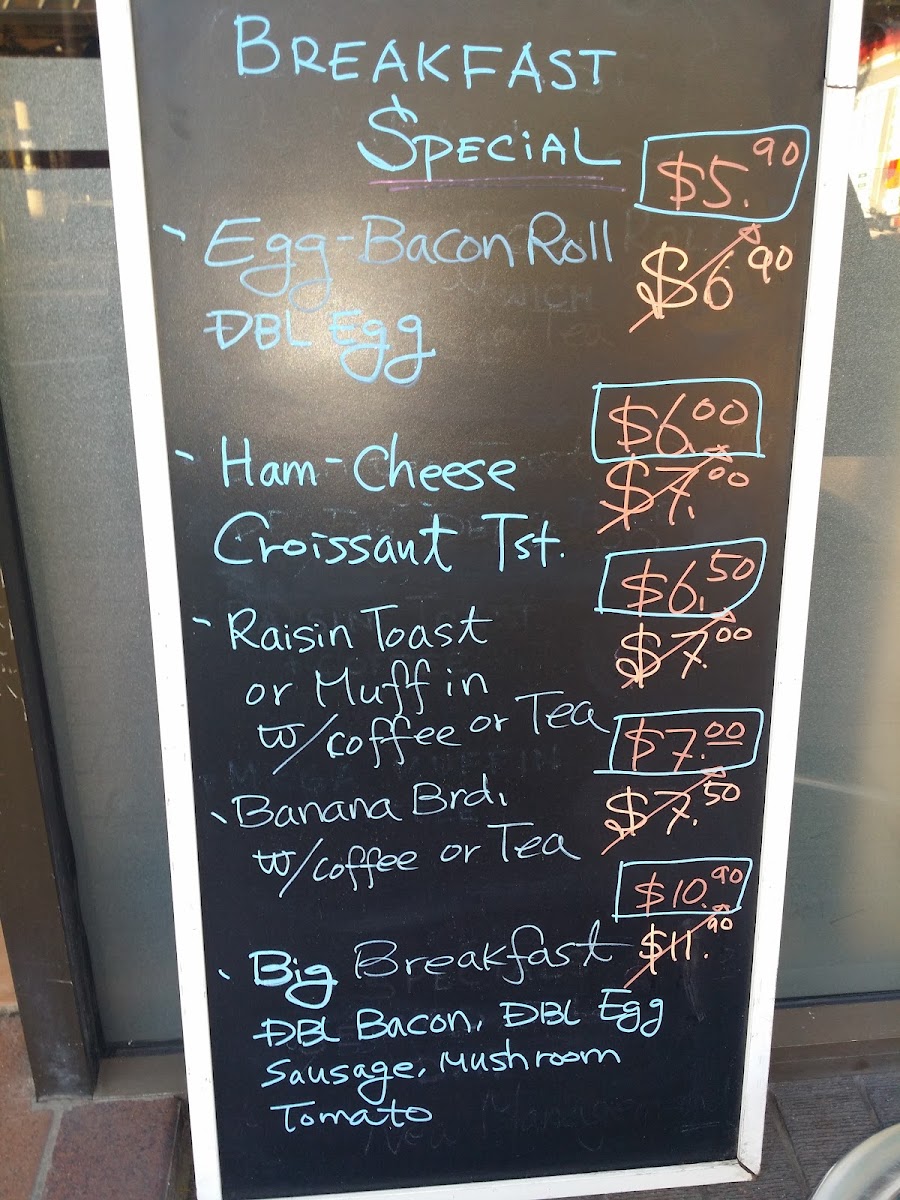 BREAKFAST
SPECIAL
$5.90
- Egg-Bacon Roll
$6.90
DBL Egg
$6.00
- Ham-Cheese
$7.00
Croissant Tst.
$6.50
- Raisin Toast
$7.00
or Muffin
w/coffee or Tea
$7.00
- Banana Brd.
$7.50
w/coffee or Tea
$10.90
- Big Breakfast
$11.90
DBL Bacon, DBL Egg
Sausage, Mushroom
Tomato